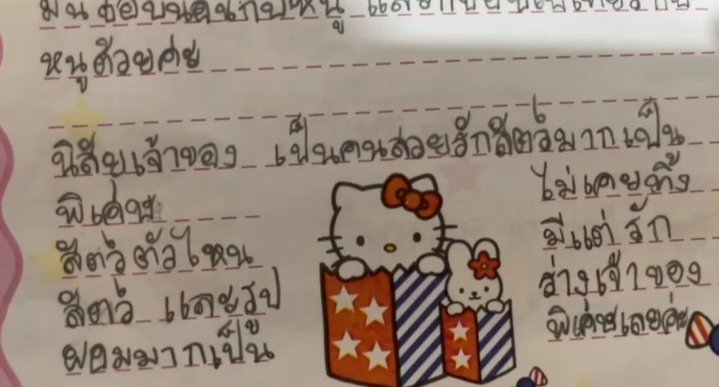 มัน ชอบนอนกับหนู และ
หนูด้วยค่ะ
นิสัยเจ้าของ เป็นคนสวยรักสัตว์มากเป็น
พิเศษ ไม่เคยทิ้ง
สัตว์ ตัวไหน มีแต่ รัก
สัตว์ และรูป ร่างเจ้าของ
ผอมมากเป็น พิเศษเลยค่ะ